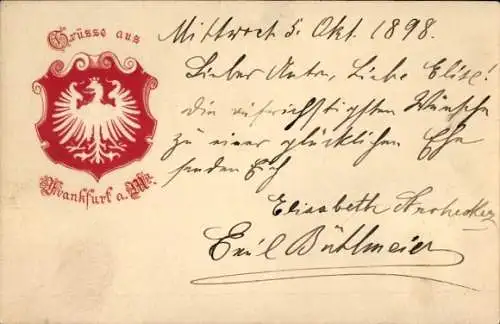 Grüsse aus
Frankfurt a. M.
Mittwoch 5. Okt. 1898.
Lieber Liebe Elise!
Die aufrichtigsten Wünsche
zu einer glücklichen Ehe
senden Euch
Elisabeth
Emil